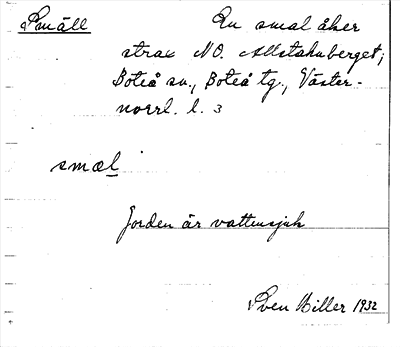 Smäll En smal åker
strax NO. Allstahuberget;
Boteå sn., Boteå tg., Väster-
norrl. l. 3
smæl
Jorden är vattensjuk
Sven Hiller 1932